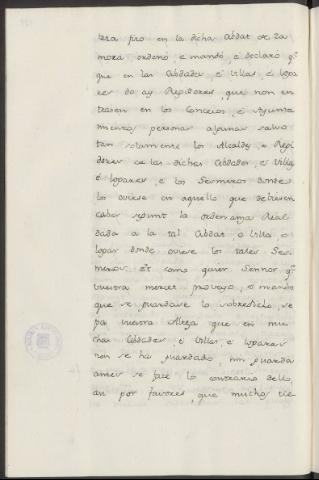 tera fizo en la dicha Abdat de Za
mora ordenó e mandó, e declaró q̃
que en las Abdades, e Villas, e loga
res do ay Regidores, que non en
trasen en los Concejos, e Ayunta
mientos personas algunas salvo
tan solamente los Alcaldes, e Regi
dores de las dichas Abdades, e Villas,
e logares, e los Sesmeros donde
los oviese en aquello que debiesen
caber segunt la ordenanza Real
dada a la tal Abdat, o Villa, o
logar donde oviere los tales Ses
meros. Et como quier Sennor q̃
vuestra merced proveyó, e mandó
que se guardase lo sobredicho, se
pa vuestra Alteza que en mu
chas Abdades, e Villas, e logares
non se ha guardado, nin guarda
antes se face lo contrario dello,
an por favores, que muchos tie-